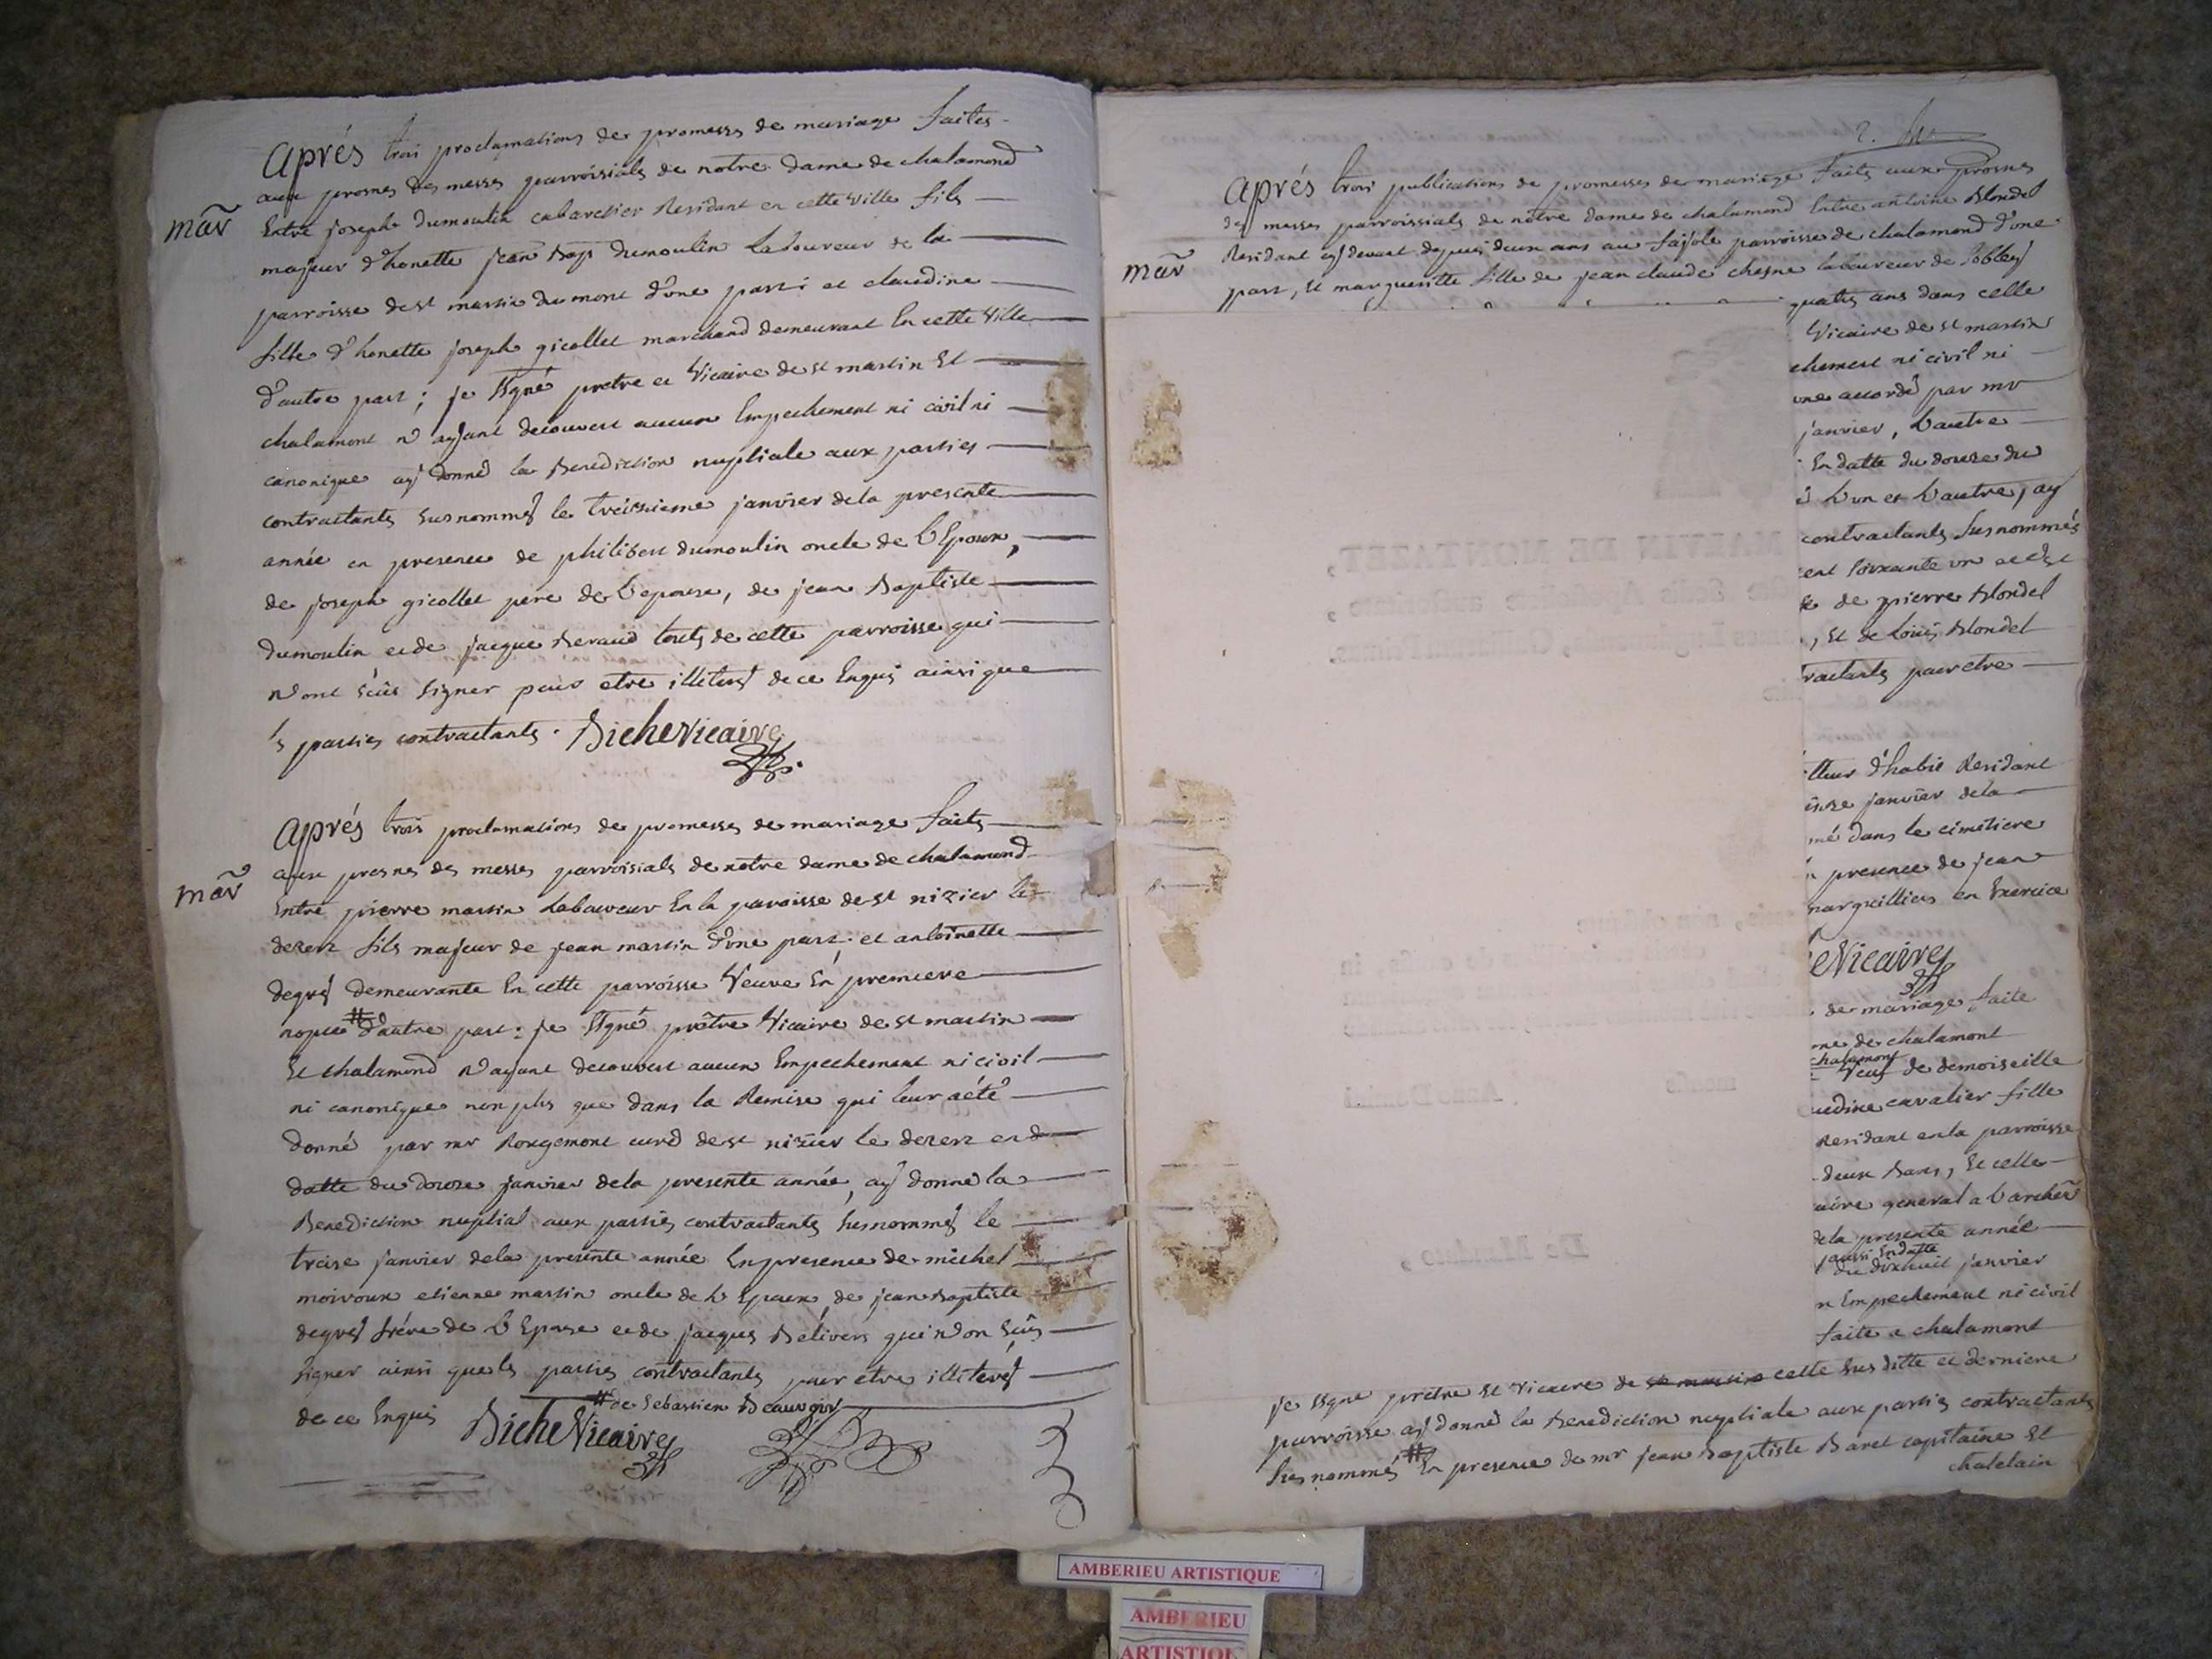 Aprés trois proclamations de promesses de mariage faites
aux prosnes des messes parroisials de notre dame de chalamond
mar Entre joseph dumoulin cabarettier Residant en cette ville fils
majeur d'honette jean bap dumoulin laboureur de la
parroisse de st martin du mont d'une part; et claudine
fille d'honette joseph gicollet marchand demeurant En cette ville
d'autre part; je ssgné pretre et Vicaire de st martin Et
chalamont n'ayant decouvert aucun Empechement ni civil ni
canonique ay donné la Benediction nuptiale aux parties
contractants susnommés le treisieme janvier de la presente
année en presence de philibert dumoulin oncle de l'Epoux,
de joseph gicollet pere de l'epouse, de jean Baptiste
dumoulin et de jacque Beraud touts de cette parroisse qui
n'ont sçûs signer pour etre illiterés de ce Enquis ainsi que
ls parties contractants. Biche Vicaire
Aprés trois proclamations de promesses de mariage faits
aux prosnes des messes parroisials de notre dame de chalamond
mar Entre pierre martin Laboureur En la paroisse de st nizier le
desert fils majeur de jean martin d'une part; et antoinette
degres demeurante En cette parroisse Veuve En premiere
nopce # d'autre part: je ssgné prêtre Vicaire de st martin
Et chalamond n'ayant decouvert aucun Empechement ni civil
ni canonique non plus que dans la Remise qui leur a été
donné par mr Rougemont curé de st nizier le desert en d
datte du douze janvier de la presente année, ay donné la
Benediction nuptial aux parties contractants susnommés le
treise janvier de la presente année En presence de michel
moivoux etienne martin oncle de l'Epoux, de jean Baptiste
degres frére de l'Epouse et de jacques Belivers qui n'on sçûs
signer ainsi que ls parties contractants pour etre illiterés
de ce Enquis # de Sebastien Beauvoir
Biche Vicaire
2.
Aprés trois publications de promesses de mariage faits aux prosnes
des messes parroissials de nôtre dame de chalamond Entre antoine Blondel
mar Residant cy devant depuis deux ans au fajole parroisse de chalamond d'une
part, et marguerite fille de jean claude chesne laboureur de
quatre ans dans celle
Vicaire de st martin
chement ni civil ni
une accordé par mr
janvier, l'autre
En datte du douze du
l'un et l'autre, ay
contractants susnommés
cent soixante un
de pierre Blondel
, et de Louis Blondel
ractants pour etre
d'habit Residant
janvier de la
mé dans le cimetiere
presence de jean
marguilliers en Exercice
eVicaire
de mariage faite
me de chalamont
chalamont
Veuf de demoiselle
udine cavalier fille
Residant en la parroisse
deux Bans, Et celle
aire general a l'archev
de la presente année
aussi En datte
du dixhuit janvier
n Empechement ni civil
faite a chalamont
je ssgné pretre et vicaire de st martin cette susditte et derniere
parroisse ay donné la Benediction nuptiale aux parties contractants
susnommés # En presence de mr jean Baptiste Baret capitaine Et
chatelain
MALVIN DE MONTAZET,
Anno Domini
De Mandato,
AMBERIEU ARTISTIQUE
AMBERIEU
ARTISTIQU